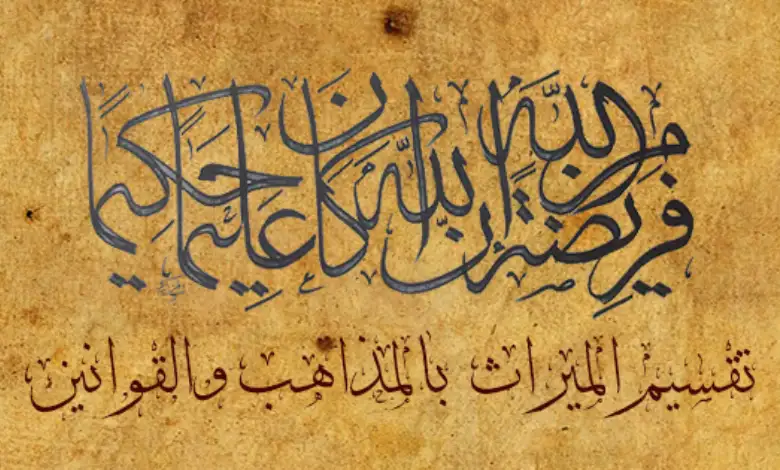 فَرِيضَةً مِنَ اللَّهِ إِنَّ اللَّهَ كَانَ عَلِيمًا حَكِيمًا
تقسيم الميراث بالمذاهب والقوانين